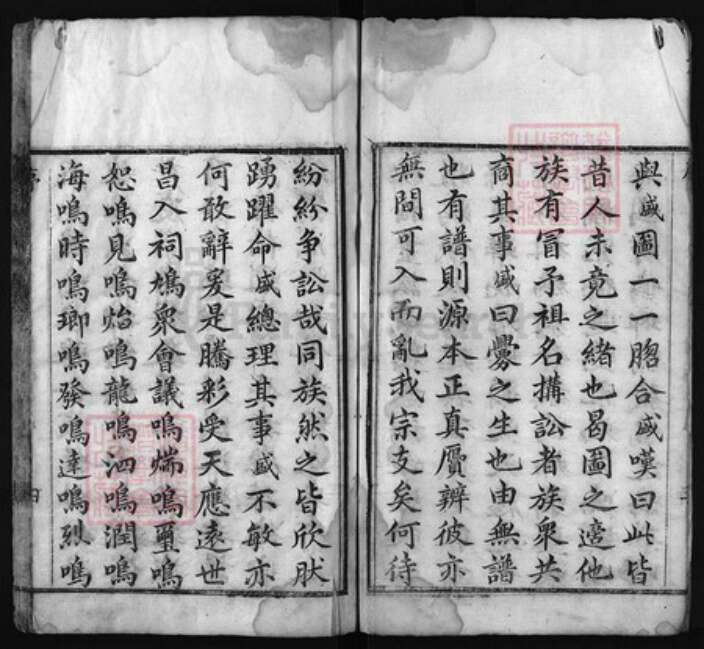 與盛圖一一脗合盛嘆曰此皆
昔人未竟之緒也曷圖之適他
族有冒予祖名搆訟者族衆共
商其事盛曰釁之生也由無譜
也有譜則源本正真贋辨彼亦
無間可入而亂我宗支矣何待
紛紛爭訟哉同族然之皆欣肰
踴躍命盛總理其事盛不敏亦
何敢辭爰是騰彩受天應遠世
昌入祠鳩衆會議鳴喘鳴璽鳴
恕鳴見鳴炲鳴龍鳴泗鳴潤鳴
海鳴時鳴瑯鳴發鳴達鳴烈鳴